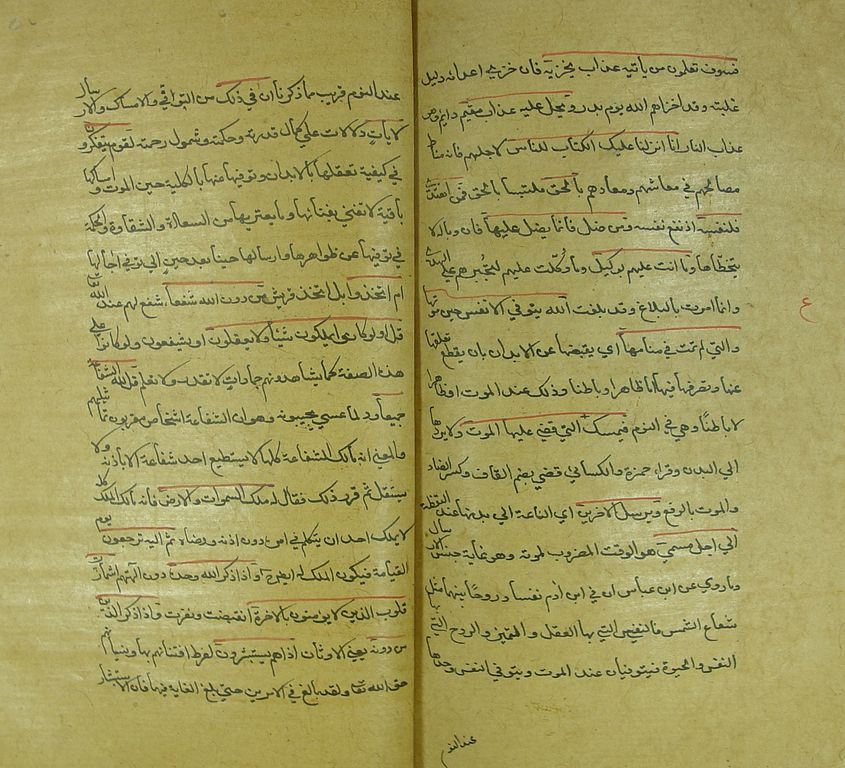 فسوف تعلمون من يأتيه عذاب يخزيه فان خزي اعدائه دليل
غلبته وقد اخزاهم الله يوم بدر ويحل عليه عذاب مقيم دايم وهو
عذاب النار انا انزلنا عليك الكتاب للناس لاجلهم فانه مناط
مصالحهم في معاشهم ومعادهم بالحق ملتبسا بالحق فمن اهتدى
فلنفسه اذ نفع نفسه ومن ضل فانما يضل عليها فان وباله لا
يتخطاها وما انت عليهم بوكيل وما وكلت عليهم لتجبرهم على الهدى
وانما امرت بالبلاغ وقد بلغت الله يتوفي الانفس حين موتها
والتي لم تمت في منامها اي يقبضها عن الابدان بان يقطع تعلقها
عنها وتصرفها فيها اما ظاهرا وباطنا وذلك عند الموت او ظاهرا
لا باطنا وهي في النوم فيمسك التي قضي عليها الموت ولا يردها
الي البدن وقراء حمزة والكسائي قضي بضم القاف وكسر الضاد
والموت بالرفع ويرسل الاخري اي النائمة الي بدنها عند اليقظة
الي اجل مسمي هو الوقت المضروب لموته وهو غاية جنس الارسال
وما روي عن ابن عباس ان في ابن ادم نفسا وروحا بينهما مثل
شعاع الشمس فالنفس التي بها العقل والتميز والروح التي بها
النفس والحيوة فيتوفيان عند الموت ويتوفي النفس وحدها
عند النوم
ع
عند النوم قريب مما ذكرنا ان في ذلك من التوافي والامساك والارسال
لايات دلالات علي كمال قدرته وحكمته وشمول رحمته لقوم يتفكرون
في كيفية تعقلها بالابدان وتوفيها عنها بالكلية حين الموت وامساكها
باقية لا تفني بفنائها وما يعتريها من السعادة والشقاوة والحكمة
في توفيها عن ظواهرها وارسالها حينا بعد حين الي توفي اجالها
ام اتخذوا بل اتخذ قريش من دون الله شفعاء شفع لهم عند الله
قل اولو كانوا لا يملكون شيئا ولا يعقلون او يشفعون ولو كانوا علي
هذه الصفة كما يشاهدونهم جمادات لا تقدر ولا تعلم قل لله الشفاعة
جميعا رد لما عسي يجيبونه وهو ان الشفاعة اشخاص مقربون تماثيلهم
والمعني انه مالك الشفاعة كلها لا يستطيع احد شفاعة الا باذنه ولا
يستقل ثم قرر ذلك فقال له ملك السموات والارض فانه مالك الملك كله
لا يملك احد ان يتكلم في امره دون اذنه ورضاه ثم اليه ترجعون يوم
القيامة فيكون الملك له ايضا ح واذا ذكر الله وحده دون آلهتهم اشمأزت
قلوب الذين لا يؤمنون بالاخرة انقبضت ونفرت واذا ذكر الذين
من دونه يعني الاوثان اذا هم يستبشرون لفرط افتتانهم بها ونسيانهم
حق الله تعالى ولقد بالغ في الامرين حتي بلغ الغاية فيهما فان الاستبشار